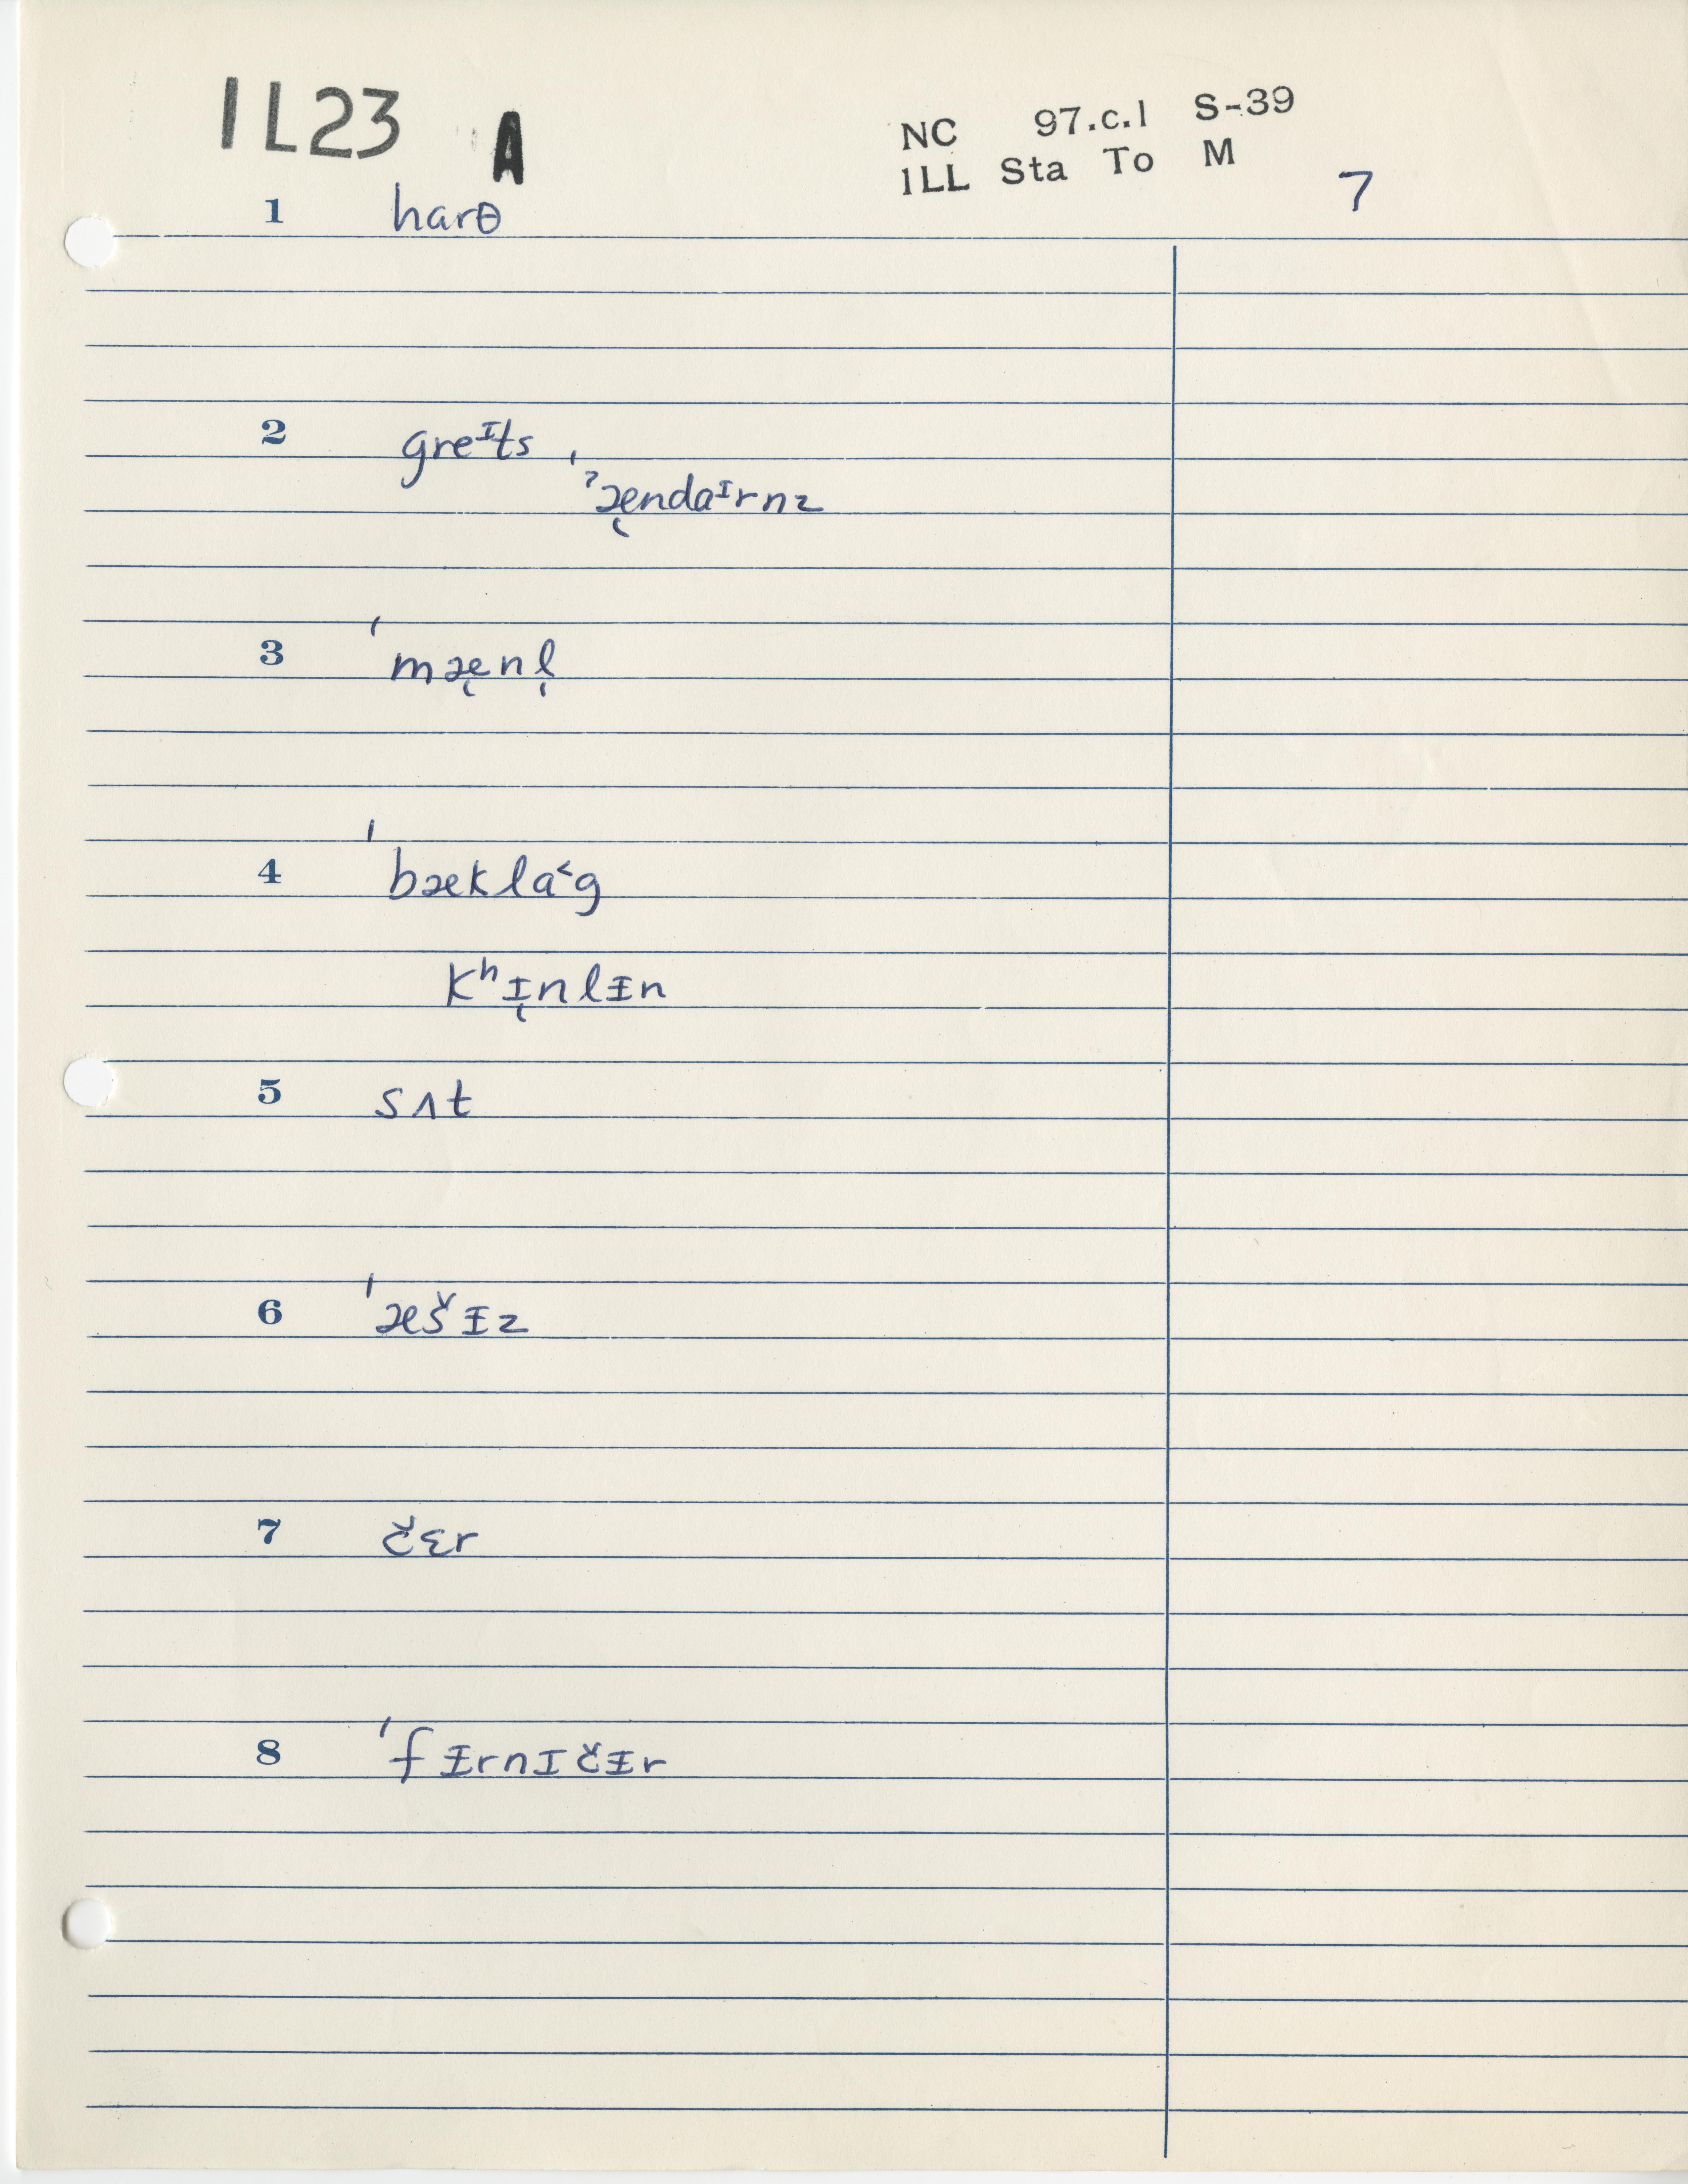 1L23 A
NC 97.c.1 S-39
1LL Sta To M
7
1 harθ
2 greᶦts
ˈˀæ̨ndaᶦrnz
3 ˈmæ̨nl̩
4 ˈbækla˂g
kʰɪ̨nlɨn
5 sʌt
6 ˈæšɨz
7 čɛr
8 ˈfɨrnɪčɨr